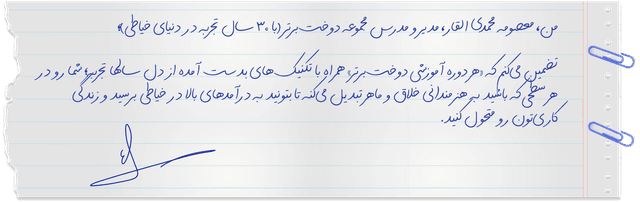 من، معصومه محمدی القار، مدیر و مدرس مجموعه دوخت برتر (با ۳۰ سال تجربه در دنیای خیاطی)،
تضمین می‌کنم که «هر دوره آموزشی دوخت برتر» همراه با تکنیک‌های بدست آمده از دل سالها تجربه، شما رو در
هر سطحی که باشید به هنرمندانی خلاق و ماهر تبدیل می‌کنه تا بتونید به درآمدهای بالا در خیاطی برسید و زندگی
کاری‌تون رو متحول کنید.